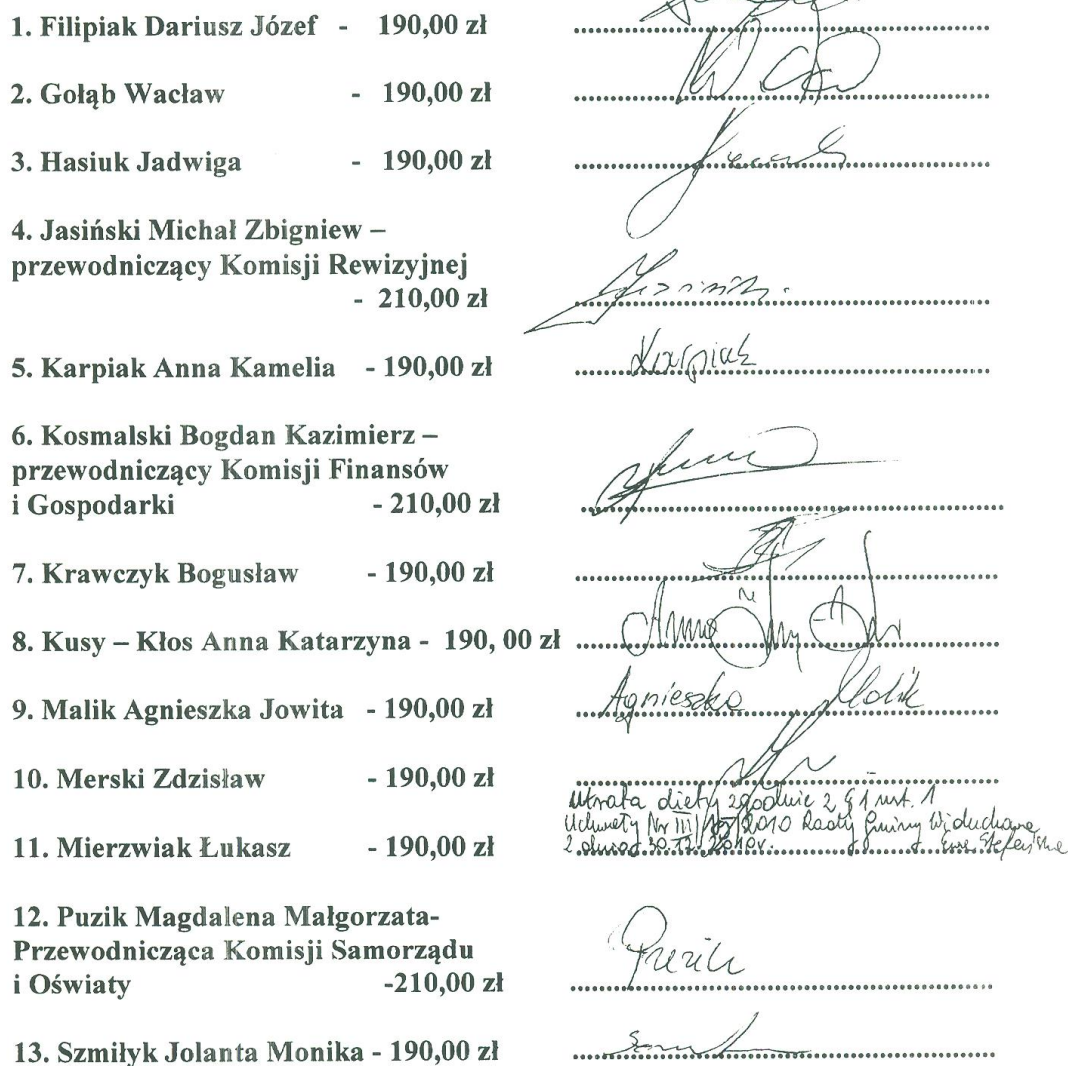 1. Filipiak Dariusz Józef - 190,00 zł
2. Gołąb Wacław - 190,00 zł
3. Hasiuk Jadwiga - 190,00 zł
4. Jasiński Michał Zbigniew –
przewodniczący Komisji Rewizyjnej
- 210,00 zł
5. Karpiak Anna Kamelia - 190,00 zł Karpiak
6. Kosmalski Bogdan Kazimierz –
przewodniczący Komisji Finansów
i Gospodarki - 210,00 zł
7. Krawczyk Bogusław - 190,00 zł
8. Kusy – Kłos Anna Katarzyna - 190, 00 zł Anna
9. Malik Agnieszka Jowita - 190,00 zł Agnieszka Malik
10. Merski Zdzisław - 190,00 zł
Utrata diety zgodnie z § 1 ust. 1
Uchwały Nr III/ /2010 Rady Gminy Widuchowa
11. Mierzwiak Łukasz - 190,00 zł z dnia 30.12.2010r. Ewa Stefańska
12. Puzik Magdalena Małgorzata-
Przewodnicząca Komisji Samorządu
i Oświaty -210,00 zł Puzik
13. Szmiłyk Jolanta Monika - 190,00 zł